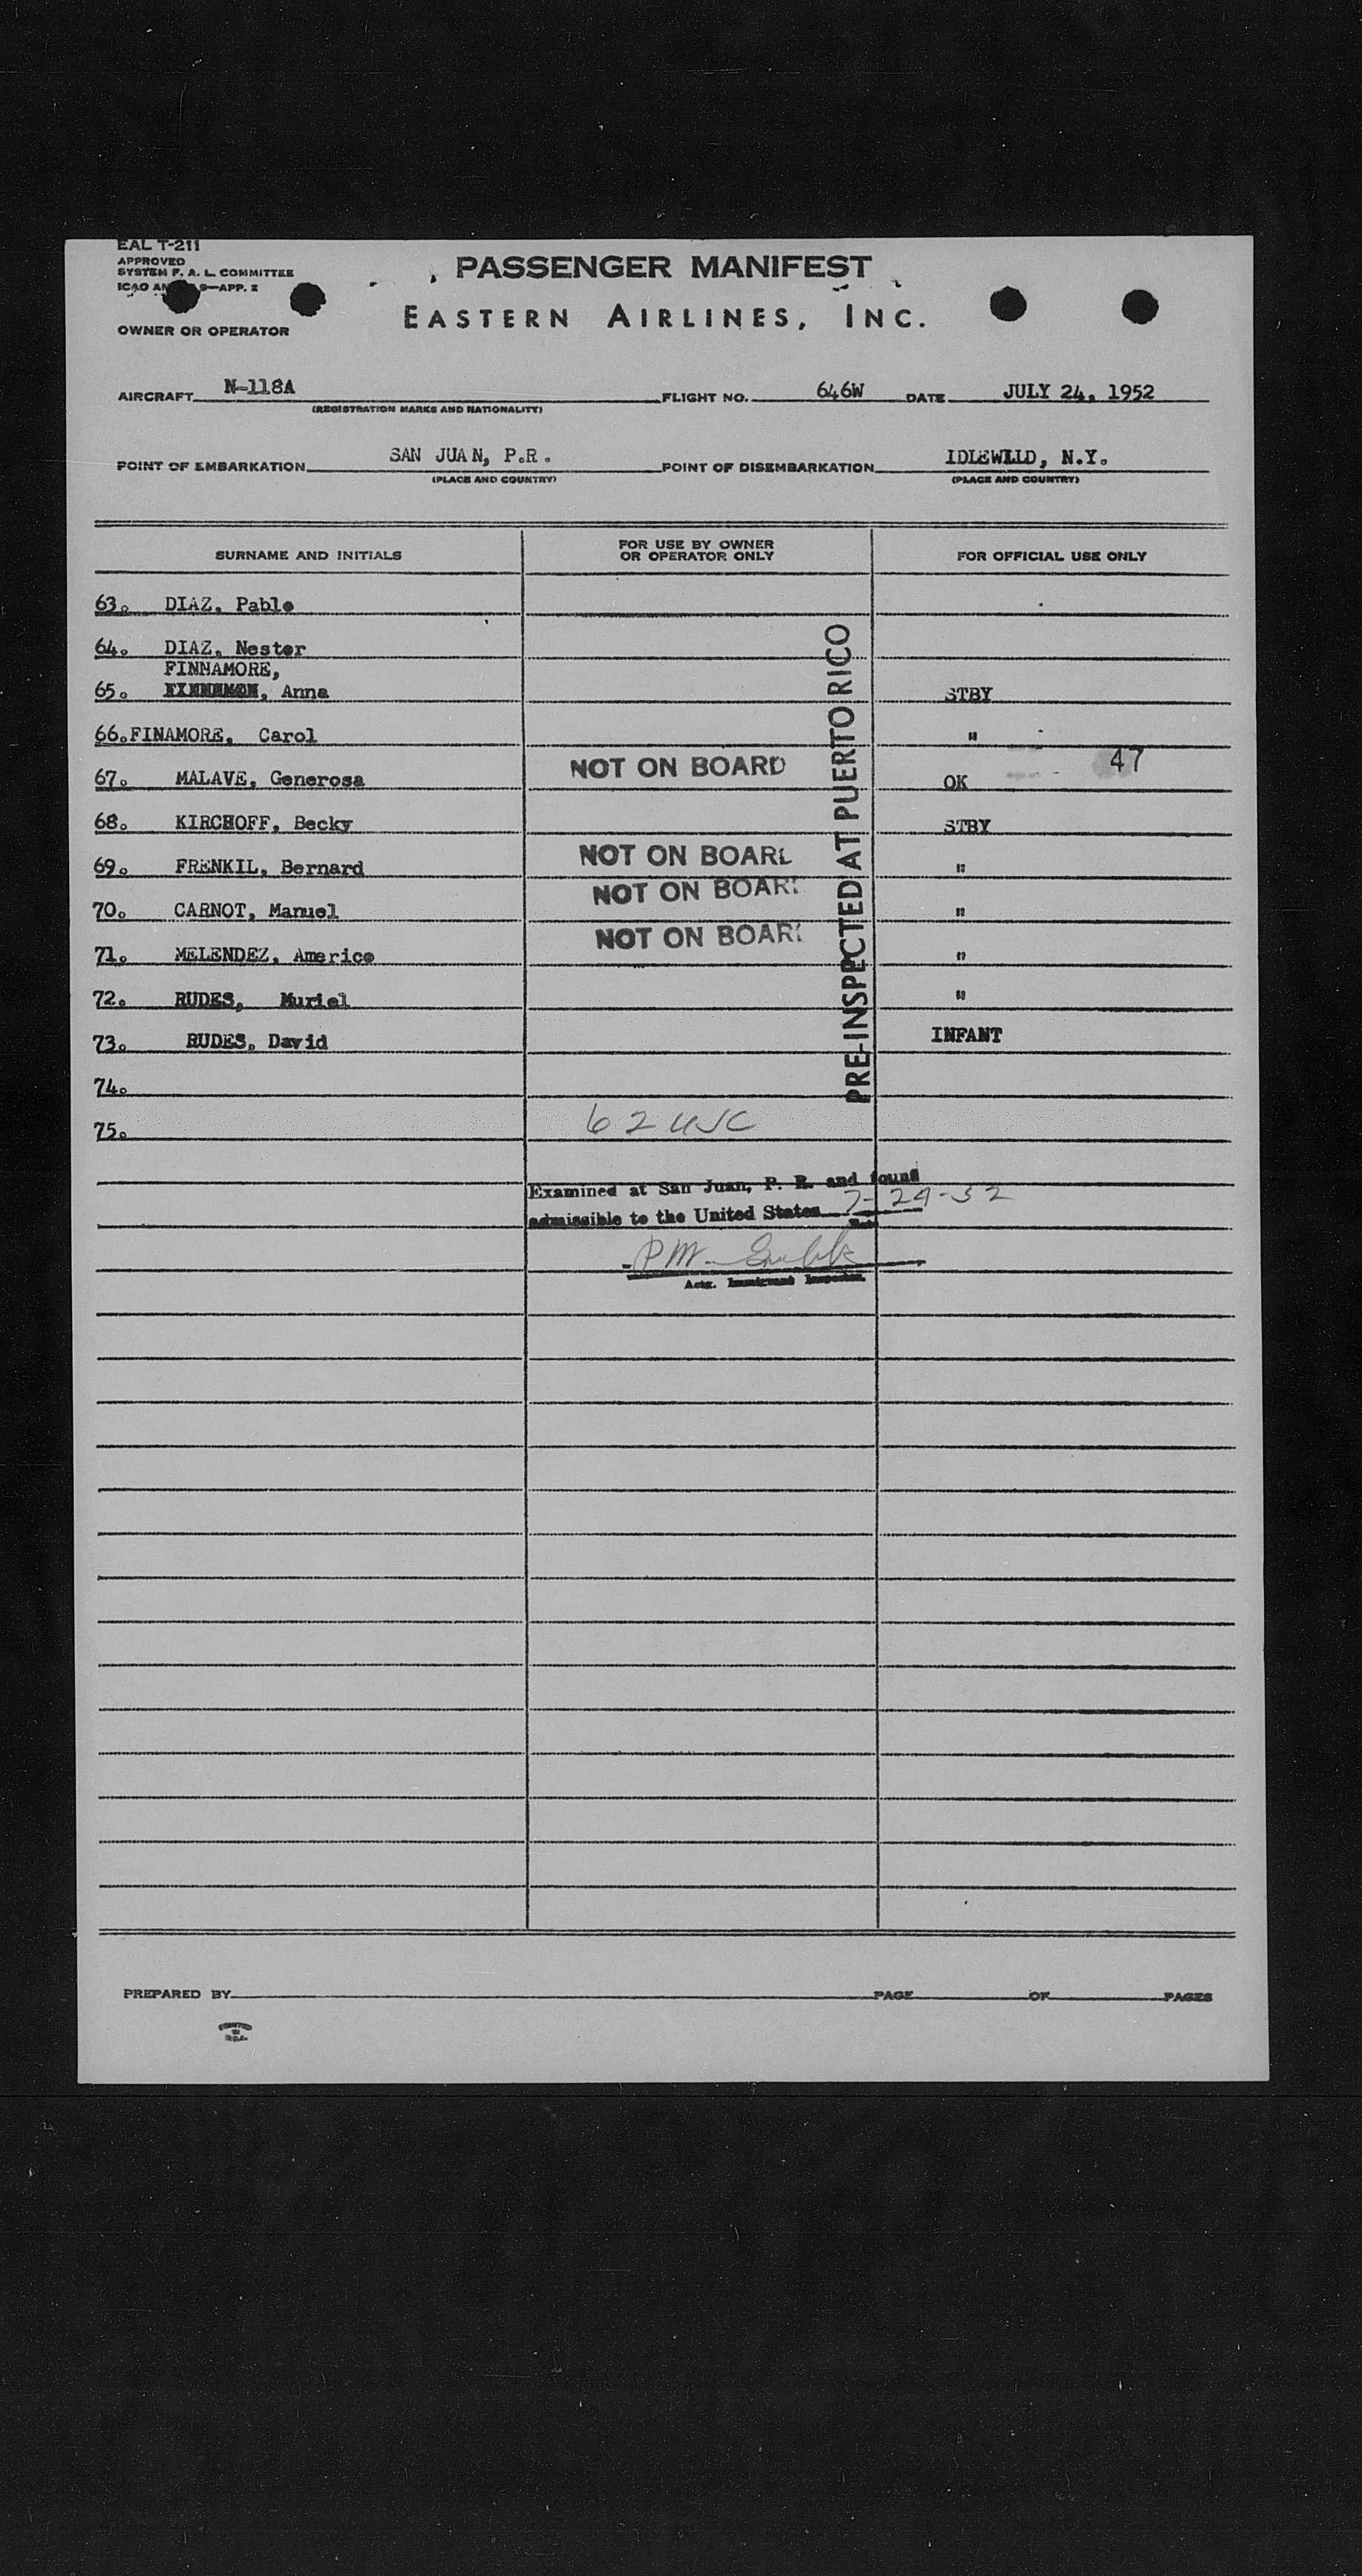 EAL T-211
APPROVED
SYSTEM F. A. L. COMMITTEE
ICAO AN 9—APP. 2
PASSENGER MANIFEST
EASTERN AIRLINES, INC.
OWNER OR OPERATOR
AIRCRAFT N-118A FLIGHT NO. 646W DATE JULY 24, 1952
(REGISTRATION MARKS AND NATIONALITY)
POINT OF EMBARKATION SAN JUAN, P.R. POINT OF DISEMBARKATION IDLEWLLD, N.Y.
(PLACE AND COUNTRY) (PLACE AND COUNTRY)
SURNAME AND INITIALS FOR USE BY OWNER OR OPERATOR ONLY FOR OFFICIAL USE ONLY
63. DIAZ, Pablo
64. DIAZ, Nestor
FINNAMORE,
65. , Anna STBY
66. FINAMORE, Carol "
47
67. MALAVE, Generosa NOT ON BOARD OK
68. KIRCHOFF, Becky STBY
69. FRENKIL, Bernard NOT ON BOARD "
70. CARNOT, Manuel NOT ON BOARD "
71. MELENDEZ, Americo NOT ON BOARD "
72. RUDES, Muriel "
73. RUDES, David INFANT
74.
75. 62 USC
PRE-INSPECTED AT PUERTO RICO
Examined at San Juan, P. R. and found
admissible to the United States 7-24-52
Date
P M
Actg. Immigrant Inspector
PREPARED BY PAGE OF PAGES
PRINTED
IN
U.S.A.